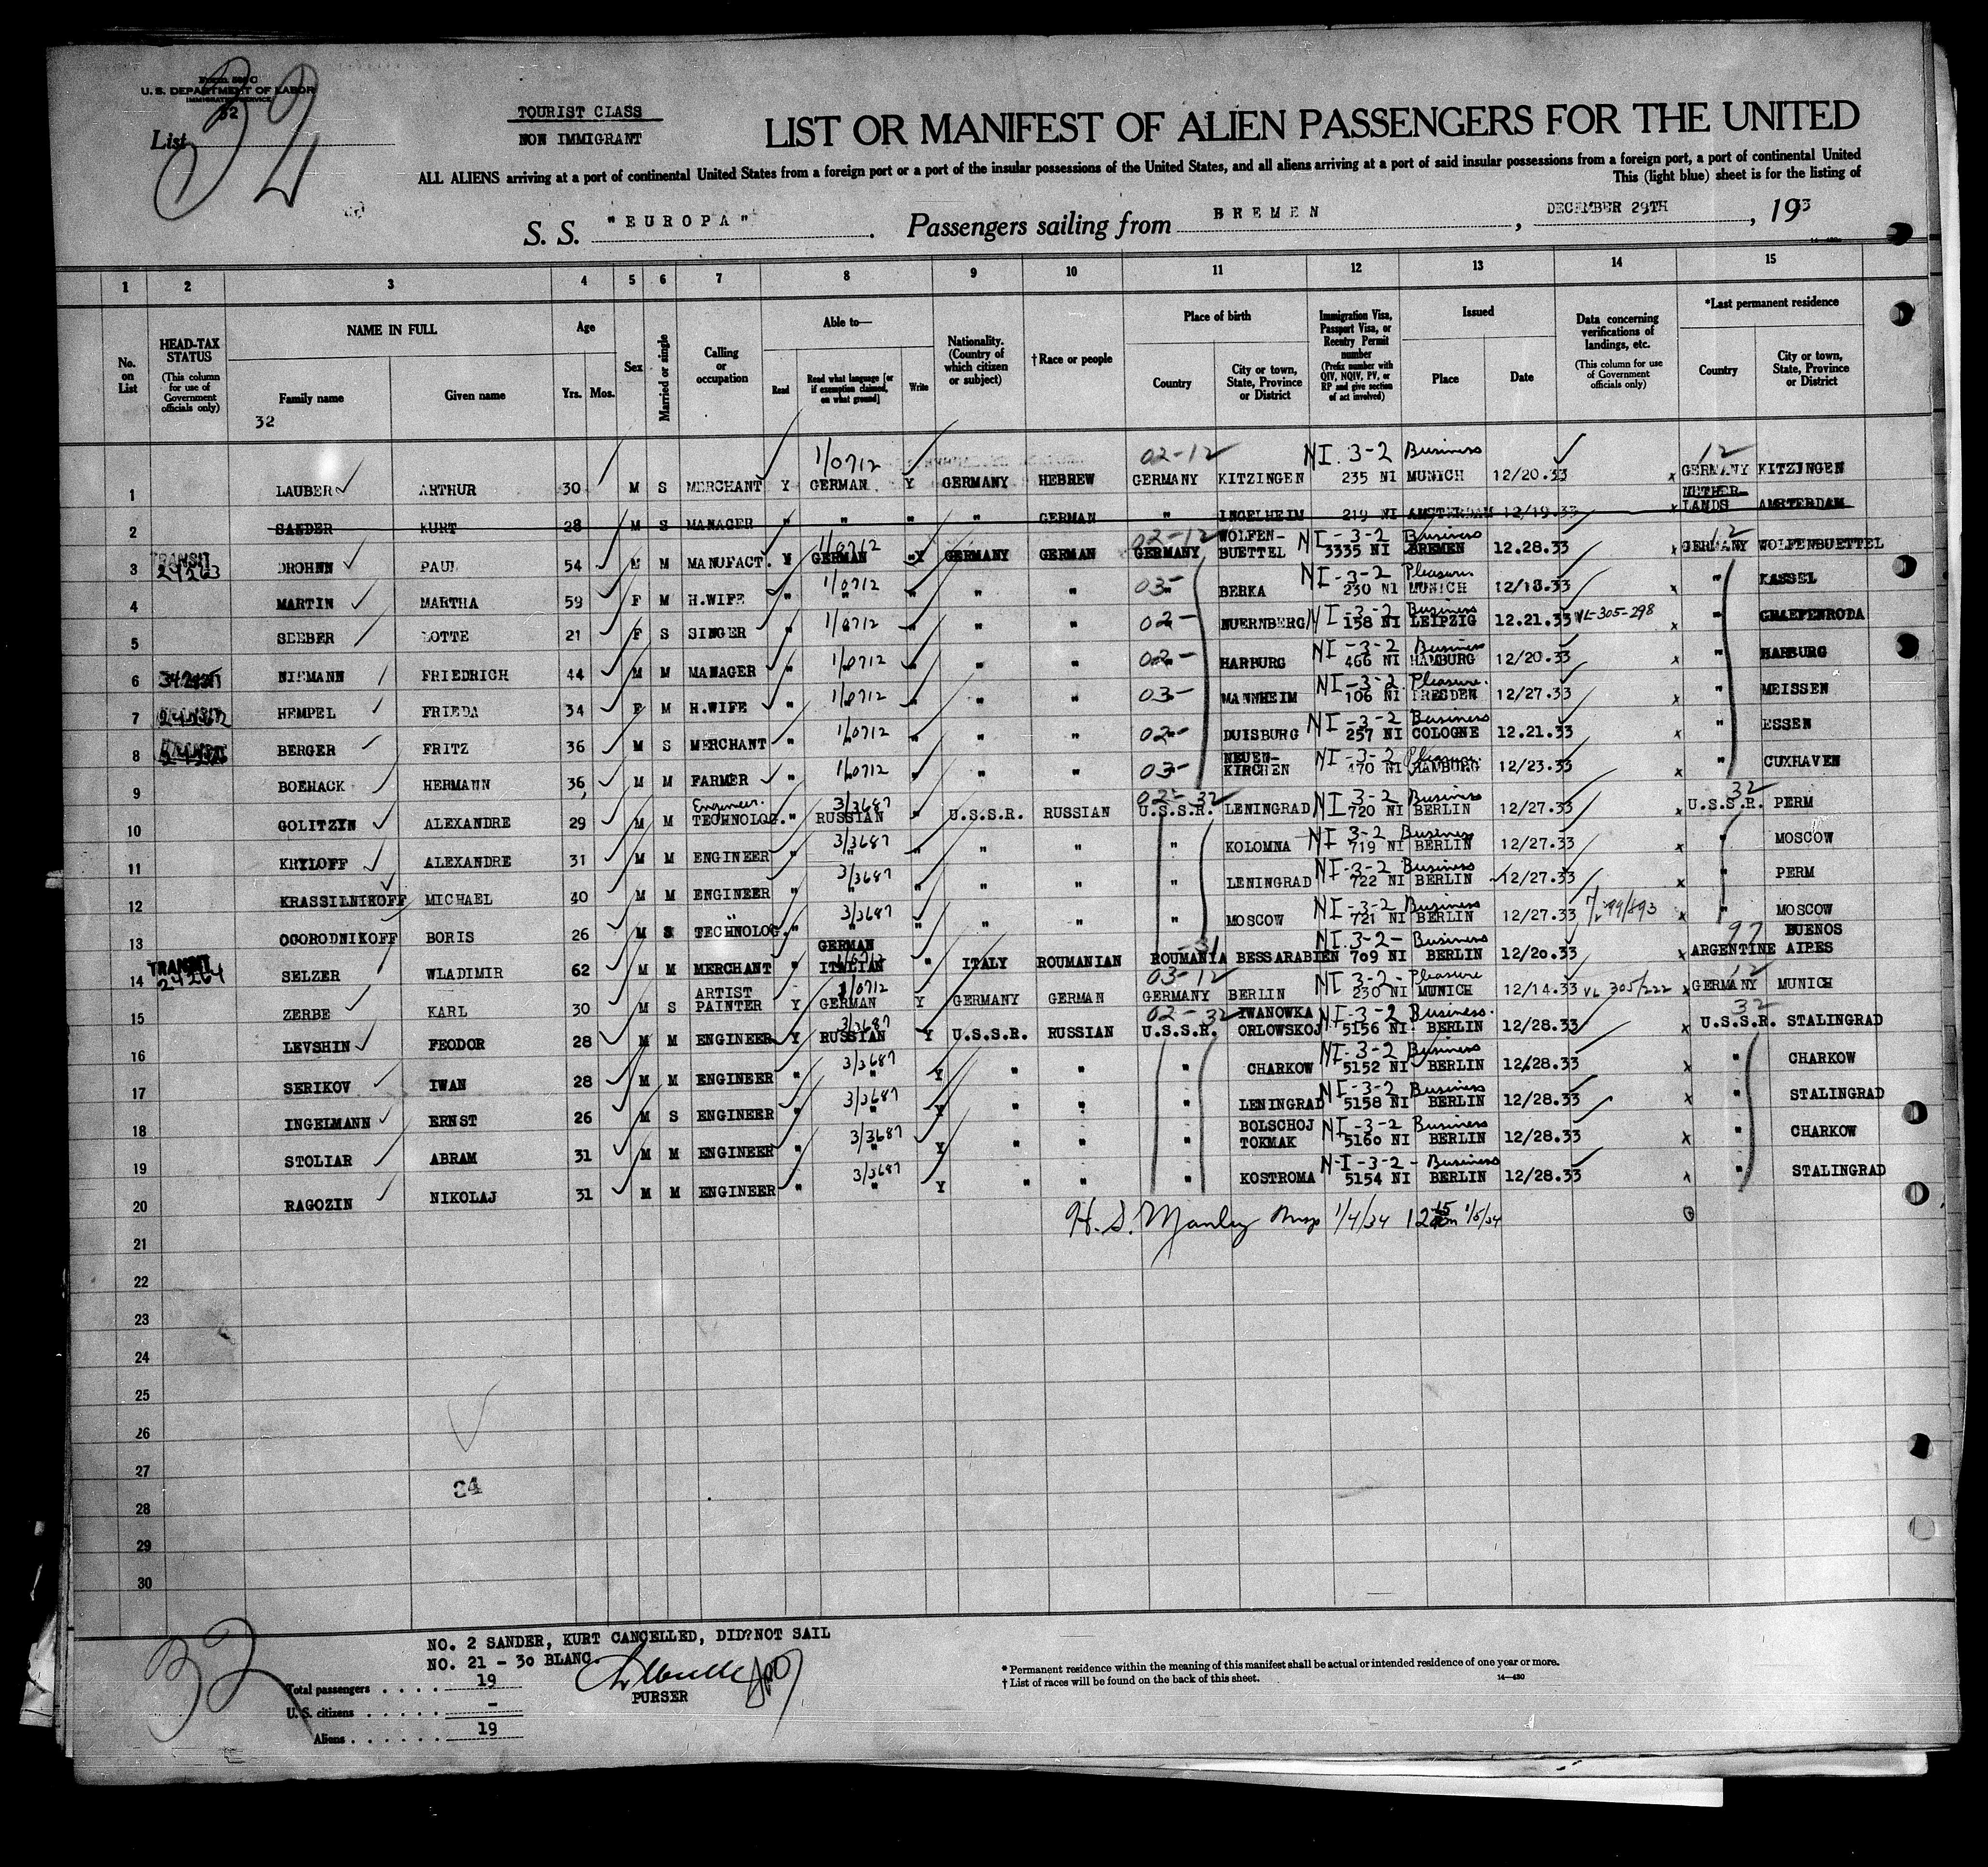 Form 500 C
U. S. DEPARTMENT OF LABOR
IMMIGRATION SERVICE
32
List 32
TOURIST CLASS
NON IMMIGRANT
LIST OR MANIFEST OF ALIEN PASSENGERS FOR THE UNITED
ALL ALIENS arriving at a port of continental United States from a foreign port or a port of the insular possessions of the United States, and all aliens arriving at a port of said insular possessions from a foreign port, a port of continental United
This (light blue) sheet is for the listing of
S. S. "EUROPA". Passengers sailing from BREMEN, DECEMBER 29TH, 193 3
1 2 3 4 5 6 7 8 9 10 11 12 13 14 15
No. on List
HEAD-TAX STATUS (This column for use of Government officials only)
NAME IN FULL Family name Given name
32
Age Yrs. Mos.
Sex
Married or single
Calling or occupation
Able to— Read Read what language [or if exemption claimed, on what ground] Write
Nationality. (Country of which citizen or subject)
†Race or people
Place of birth Country City or town, State, Province or District
Immigration Visa, Passport Visa, or Reentry Permit number (Prefix number with QIV, NQIV, PV, or RP and give section of act involved)
Issued Place Date
Data concerning verifications of landings, etc. (This column for use of Government officials only)
*Last permanent residence Country City or town, State, Province or District
1/0712 02-12 NI. 3-2 Business 12
1 LAUBER ARTHUR 30 M S MERCHANT Y GERMAN Y GERMANY HEBREW GERMANY KITZINGEN 235 NI MUNICH 12/20.33 x GERMANY KITZINGEN
2 SANDER KURT 28 M S MANAGER " " " " GERMAN " INGELHEIM 219 NI AMSTERDAM 12/19.33 x NETHER- LANDS AMSTERDAM
1/0712 02-12 NI-3-2 Business 12
3 TRANSIT 24263 DROHNN PAUL 54 M M MANUFACT. Y GERMAN "Y GERMANY GERMAN GERMANY WOLFEN- BUETTEL 3335 NI BREMEN 12.28.33 x GERMANY WOLFENBUETTEL
1/0712 03- NI-3-2 Pleasure
4 MARTIN MARTHA 59 F M H.WIFE " " " " " " BERKA 230 NI MUNICH 12/18.33 x " KASSEL
1/0712 02- NI-3-2 Business
5 SEEBER LOTTE 21 F S SINGER " " " " " " NUERNBERG 158 NI LEIPZIG 12.21.33 VL-305-298 x " GRAEFENRODA
1/0712 02- NI-3-2 Business
6 NIEMANN FRIEDRICH 44 M M MANAGER " " " " " " HARBURG 466 NI HAMBURG 12/20.33 x " HARBURG
1/0712 03- NI-3-2 Pleasure.
7 HEMPEL FRIEDA 34 F M H.WIFE " " " " " " MANNHEIM 106 NI DRESDEN 12/27.33 x " MEISSEN
1/0712 02- NI-3-2 Business
8 BERGER FRITZ 36 M S MERCHANT " " " " " " DUISBURG 257 NI COLOGNE 12.21.33 x " ESSEN
1/0712 03- NI-3-2 Pleasure
9 BOEHACK HERMANN 36 M M FARMER " " " " " " NEUEN- KIRCHEN 470 NI HAMBURG 12/23.33 x " CUXHAVEN
Engineer. 3/3687 02-32 NI 3-2 Business 32
10 GOLITZYN ALEXANDRE 29 M M TECHNOLOG. " RUSSIAN " U.S.S.R. RUSSIAN U.S.S.R. LENINGRAD 720 NI BERLIN 12/27.33 x U.S.S.R. PERM
3/3687 NI 3-2 Business
11 KRYLOFF ALEXANDRE 31 M M ENGINEER " " " " " " KOLOMNA 719 NI BERLIN 12/27.33 x " MOSCOW
3/3687 NI-3-2 Business
12 KRASSILNIKOFF MICHAEL 40 M M ENGINEER " " " " " " LENINGRAD 722 NI BERLIN 12/27.33 x " PERM
3/3687 NI-3-2 Business
13 OGORODNIKOFF BORIS 26 M S TECHNOLOG. " " " " " " MOSCOW 721 NI BERLIN 12/27.33 99/893 x " MOSCOW
-31 NI.3-2- Business 97
14 TRANSIT 24264 SELZER WLADIMIR 62 M M MERCHANT " GERMAN ITALIAN " ITALY ROUMANIAN ROUMANIA BESSARABIEN 709 NI BERLIN 12/20.33 x ARGENTINE BUENOS AIPES
1/0712 03-12 NI 3-2-Pleasure 12
15 ZERBE KARL 30 M S ARTIST PAINTER Y GERMAN Y GERMANY GERMAN GERMANY BERLIN 230 NI MUNICH 12/14.33 VL 305/222 x GERMANY MUNICH
3/3687 02-32 NI-3-2 Business. 32
16 LEVSHIN FEODOR 28 M M ENGINEER Y RUSSIAN Y U.S.S.R. RUSSIAN U.S.S.R. IWANOWKA ORLOWSKOJ 5156 NI BERLIN 12/28.33 x U.S.S.R. STALINGRAD
3/3687 NI-3-2 Business
17 SERIKOV IWAN 28 M M ENGINEER " " Y " " " CHARKOW 5152 NI BERLIN 12/28.33 x " CHARKOW
3/3687 NI-3-2 Business
18 INGELMANN ERNST 26 M S ENGINEER " " Y " " " LENINGRAD 5158 NI BERLIN 12/28.33 x " STALINGRAD
3/3687 NI-3-2 Business
19 STOLIAR ABRAM 31 M M ENGINEER " " Y " " " BOLSCHOJ TOKMAK 5160 NI BERLIN 12/28.33 x " CHARKOW
3/3687 N-I-3-2- Business
20 RAGOZIN NIKOLAJ 31 M M ENGINEER " " Y " " " KOSTROMA 5154 NI BERLIN 12/28.33 x " STALINGRAD
H. S. Manley Insp 1/4/34 1/5/34
21
22
23
24
25
26
27
28
29
30
NO. 2 SANDER, KURT CANCELLED, DID?NOT SAIL
NO. 21 - 30 BLANC.
32
Total passengers . . . . 19
PURSER
U. S. citizens . . . . . -
Aliens . . . . . . 19
* Permanent residence within the meaning of this manifest shall be actual or intended residence of one year or more.
† List of races will be found on the back of this sheet.
14—430